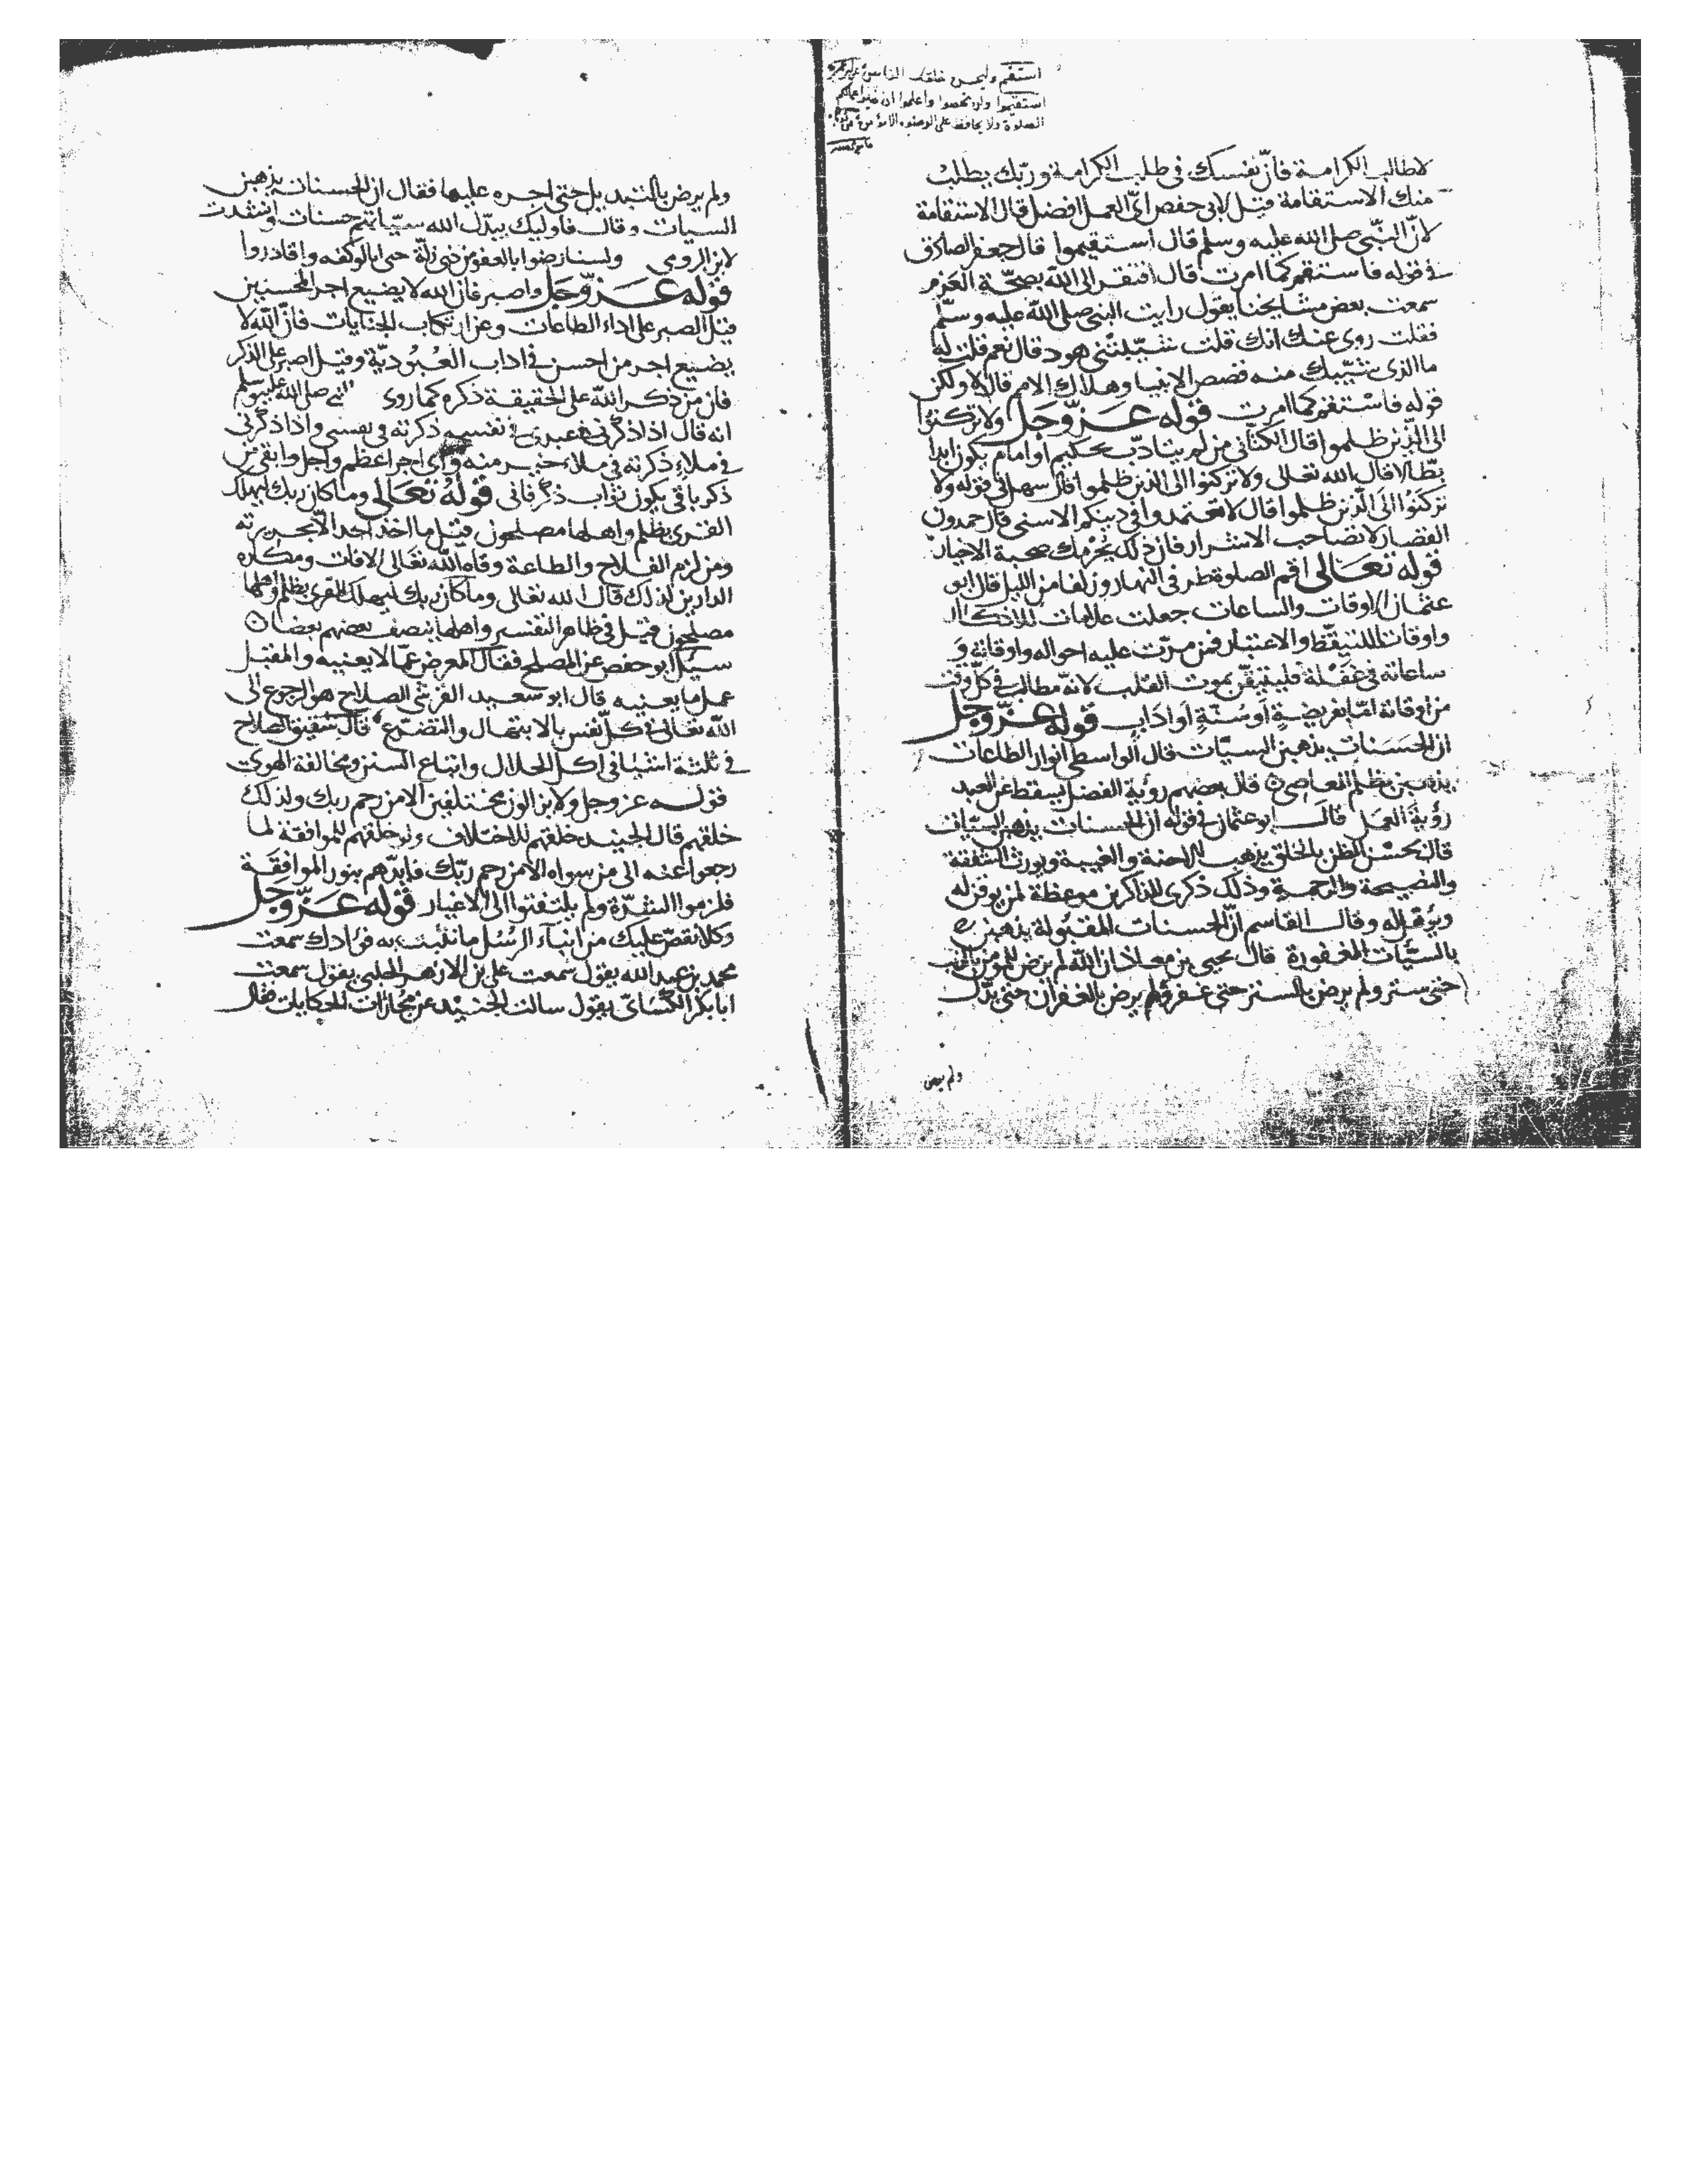 استقم وليحسن خلقك
استقيموا ولن تحصوا واعلموا ان خير اعمالكم
الصلوة ولا يحافظ على الوضوء الا مؤمن
لا طالب الكرامة فانّ نفسك في طلب الكرامة وربّك يطلب
منك الاستقامة قيل لابي حفص ايّ العمل افضل قال الاستقامة
لانّ النبّي صلى الله عليه وسلم قال استقيموا قال جعفر الصادق
في قوله فاستقم كما امرت قال افتقر الى الله بصحّة العزم
سمعت بعض مشايخنا يقول رايت النبي صلى الله عليه وسلّم
فقلت روى عنك انك قلت شيّبتني هود قال نعم قلت له
ما الذي شيّبك منه قصص الانبيا وهلاك الامم قال لا ولكن
قوله فاستقم كما امرت قوله عزّ وجلّ ولا تركنوا
الى الذين ظلموا قال الكتاني من لم يتادّب بحكيم او امام يكون ابدا
بطّالا قال الله تعالى ولا تركنوا الى الذين ظلموا قال سهل في قوله ولا
تركنوا الى الذين ظلموا قال لا تعتمدوا في دينكم الا سني قال حمدون
القصار لا تصاحب الاشرار فان ذلك يحرمك صحبة الاخيار
قوله تعالى اقم الصلوة طرفي النهار وزلفا من الليل قال ابو
عثمان اوقات والساعات جعلت علامات للاذكار
واوقات للتيقّظ والاعتبار فمن مرّت عليه احواله واوقاته وَ
ساعاته في غفلة فليتيقّن بموت القلب لانّه مطالب في كلّ وقت
من اوقاته امّا بفريضةٍ او سُنّةٍ او ادابٍ قوله عزّ وجلّ
ان الحَسَنات يذهبن السيّات قال الواسطي انوار الطاعات
يذهبن بظلم المعاصي قال بعضهم رؤية الفضل يسقط عن العبد
رؤية العمل قال ابو عثمان في قوله ان الحسنات يذهبن السيّات
قال بحسن الظن بالخلق يذهب الاحنة والغيبة ويورث الشفقة
والنصيحة والرحمة وذلك ذكرى للذاكرين موعظة لمن يوفق له
ويؤهل له وقال القاسم انّ الحسنات المقبولة يذهبن
بالسيّات المغفورة قال يحيى بن معاذ ان الله لم يرض للمومن بالذنب
حتى ستر ولم يرض بالستر حتى غفر ولم يرض بالغفران حتى بدّل
ولم يرض
ولم يرض بالتبديل حتى اجره عليها فقال ان الحسنات يذهبن
السيات وقال فاوليك يبدّل الله سيّاتهم حسنات وانشدت
لابن الرومي ولسنا
قوله عزّ وجلّ واصبر فان الله لا يضيع اجر المحسنين
قيل الصبر على اداء الطاعات وعن ارتكاب الجنايات فانّ الله لا
يضيع اجر من احسن في اداب العُبُوديّة وقيل اصبر على الذكر
فان من ذكر الله على الحقيقة ذكره كما روى النبي صلى الله عليه وسلم
انه قال اذا ذكرني عبدي في نفسه ذكرته في نفسي واذا ذكرني
في ملاء ذكرته في ملاء خير منه واي اجر اعظم واجل وابقى من
ذكر باقى يكون ثواب ذكر فاني قوله تعالى وما كان ربك ليهلك
القرى بظلم واهلها مصلحون قيل ما اخذ احد الا بجريرته
ومن لزم الفلاح والطاعة وقاه الله تعالى الافات ومكاره
الدارين لذلك قال الله تعالى وما كان ربك ليهلك القرى بظلم واهلها
مصلحون قيل في ظاهر التفسير واهلها ينصف بعضهم بعضا
سيل ابو حفص عن المصلح فقال المعرض عمّا لا يعنيه والمقبل
عمل ما يعنيه قال ابو سعيد القرشي الصلاح هو الرجوع الى
الله تعالى في كلّ نفس بالابتهال والتضرّع قال شقيق الصلاح
في ثلثة اشيا في اكل الحلال واتباع السنن ومخالفة الهوى
قوله عز وجل ولا يزالون مختلفين الا من رحم ربك ولذلك
خلقهم قال الجنيد خلقهم للاختلاف ولو خلقهم للموافقة لما
رجعوا عنه الى من سواه الا من رحم ربّك فايّدهم بنور الموافقة
فلزموا الشدّة ولم يلتفتوا الى الاغيار قوله عزّ وجلّ
وكلا نقصّ عليك من انباء الرسُل ما نثبت به فؤادك سمعت
محمد بن عبد الله يقول سمعت علي بن الازهر الحلبي يقول سمعت
ابا بكر الكسائي يقول سالت الجنيد عن مجازات الحكايات فقال